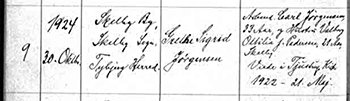 9
1924
30. Oktbr.
Skelby By,
Skelby Sogn,
Tybjerg Herred
Grethe Sigrid
Jørgensen
Carl Jørgensen
33 Aar, og Hustru
Ottilie J. Pedersen, 21 Aar
Skelby
Viede i Kirke
1922 - 21. Maj.